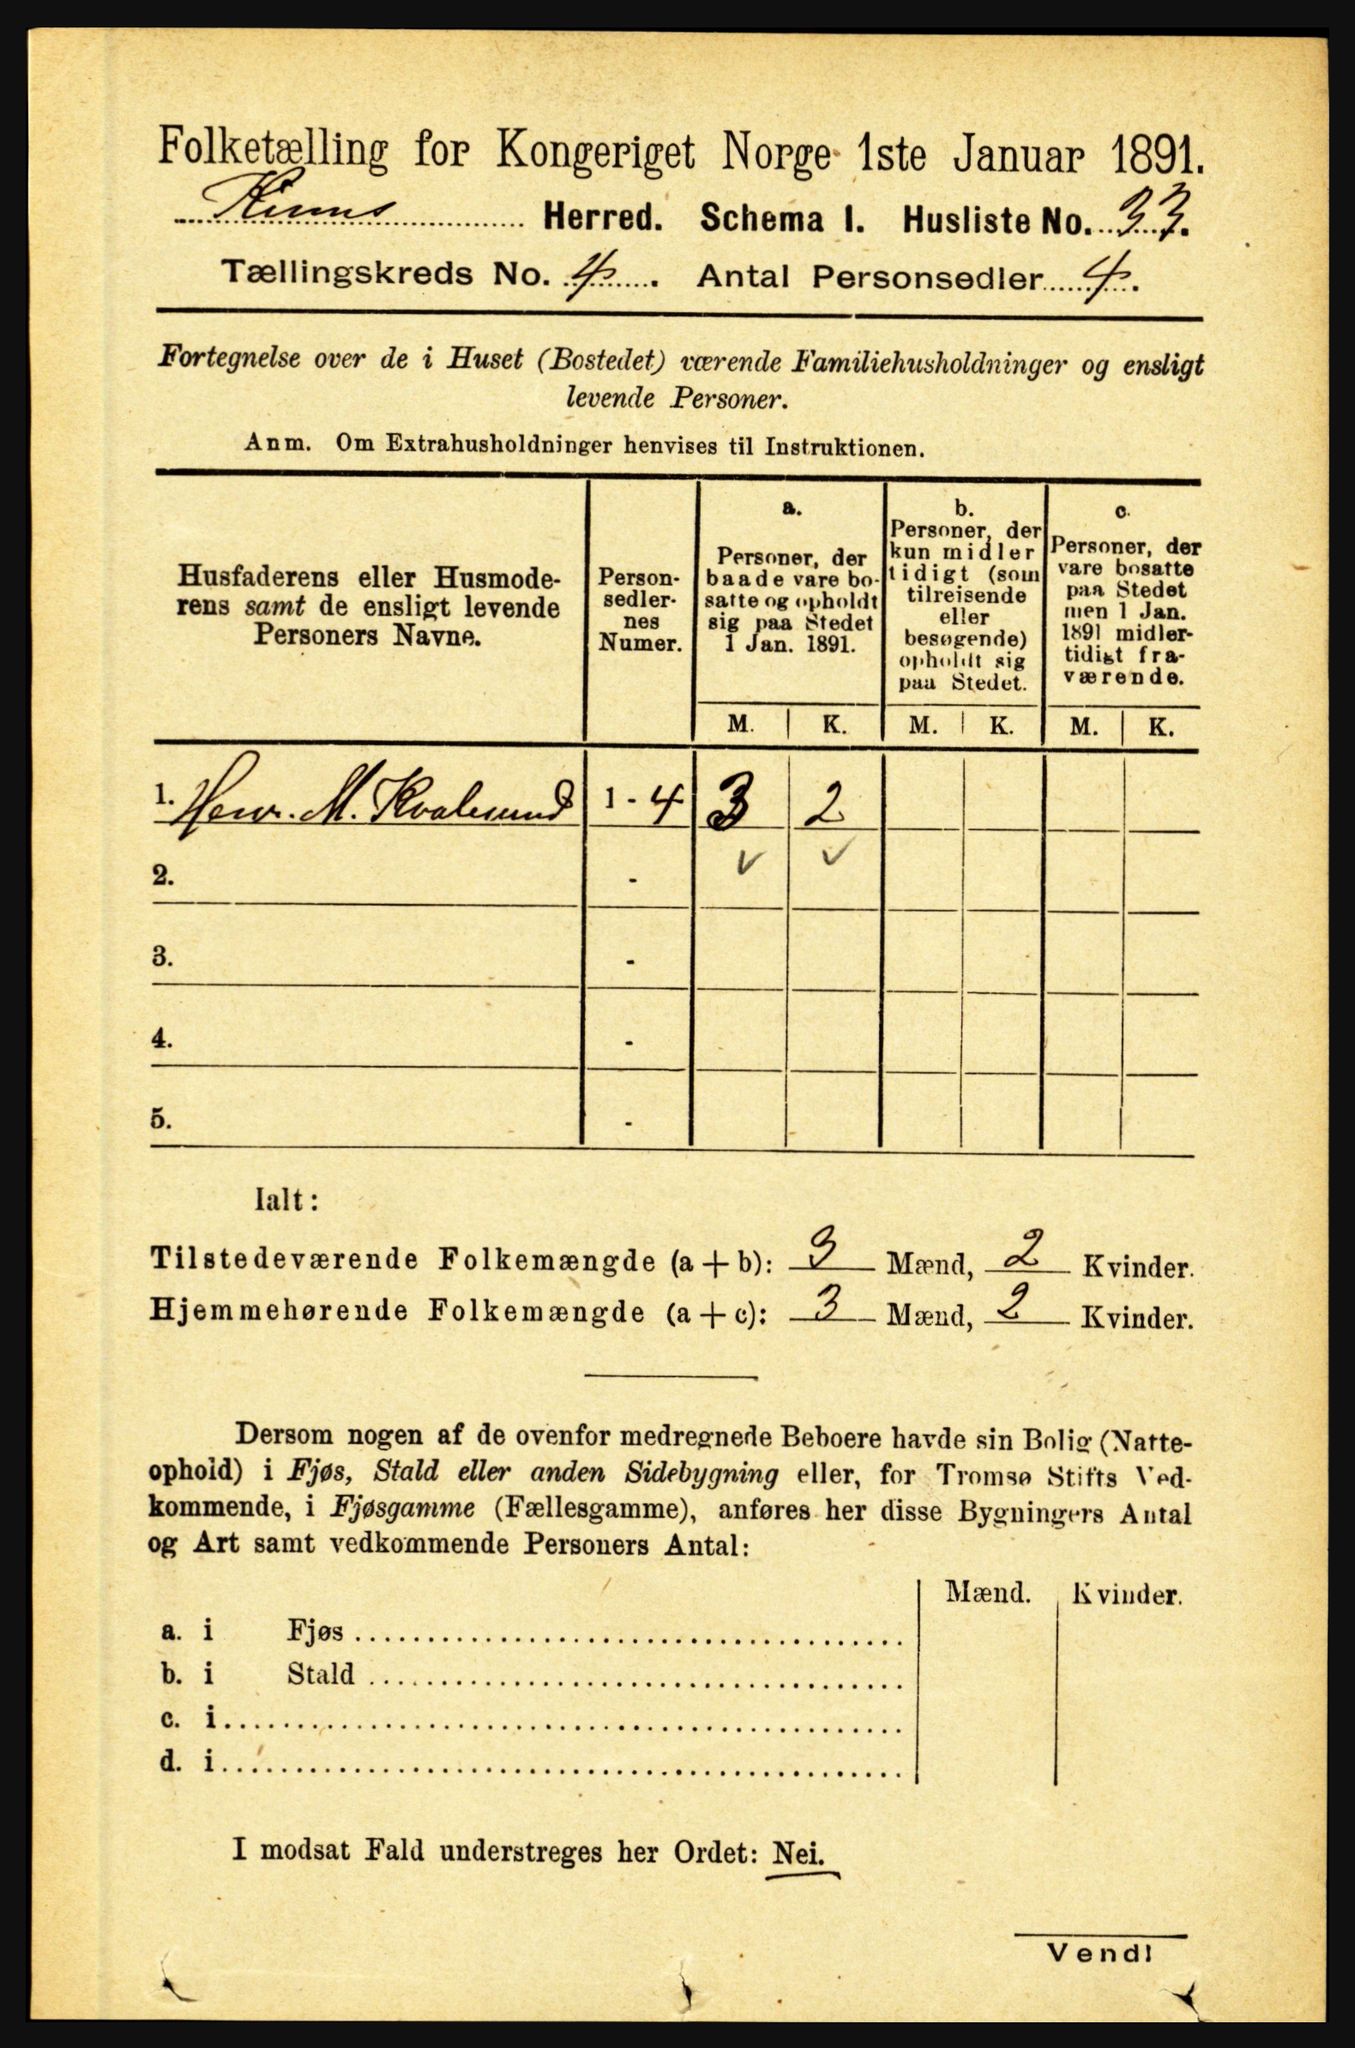 Folketælling for Kongeriget Norge 1ste Januar 1891.
Kinns Herred. Schema I. Husliste No. 33.
Tællingskreds No. 4. Antal Personsedler 4.
Fortegnelse over de i Huset (Bostedet) værende Familiehusholdninger og ensligt
levende Personer.
Anm. Om Extrahusholdninger henvises til Instruktionen.
Husfaderens eller Husmode-
rens samt de ensligt levende
Personers Navne.
Person-
sedler-
nes
Numer.
a.
Personer, der
baade vare bo-
satte og opholdt
sig paa Stedet
1 Jan. 1891.
b.
Personer, der
kun midler
tidigt (som
tilreisende
eller
besøgende)
opholdt sig
paa Stedet.
c.
Personer, der
vare bosatte
paa Stedet
men 1 Jan.
1891 midler-
tidigt fra-
værende.
M. K. M. K. M. K.
1. Henr. M. Kvalesund 1 - 4 3 2
2. - ✓ ✓
3. -
4. -
5. -
Ialt:
Tilstedeværende Folkemængde (a + b): 3 Mænd, 2 Kvinder.
Hjemmehørende Folkemængde (a + c): 3 Mænd, 2 Kvinder.
Dersom nogen af de ovenfor medregnede Beboere havde sin Bolig (Natte-
ophold) i Fjøs, Stald eller anden Sidebygning eller, for Tromsø Stifts Ved-
kommende, i Fjøsgamme (Fællesgamme), anføres her disse Bygningers Antal
og Art samt vedkommende Personers Antal:
Mænd. Kvinder.
a. i Fjøs
b. i Stald
c. i
d. i
I modsat Fald understreges her Ordet: Nei.
Vend!